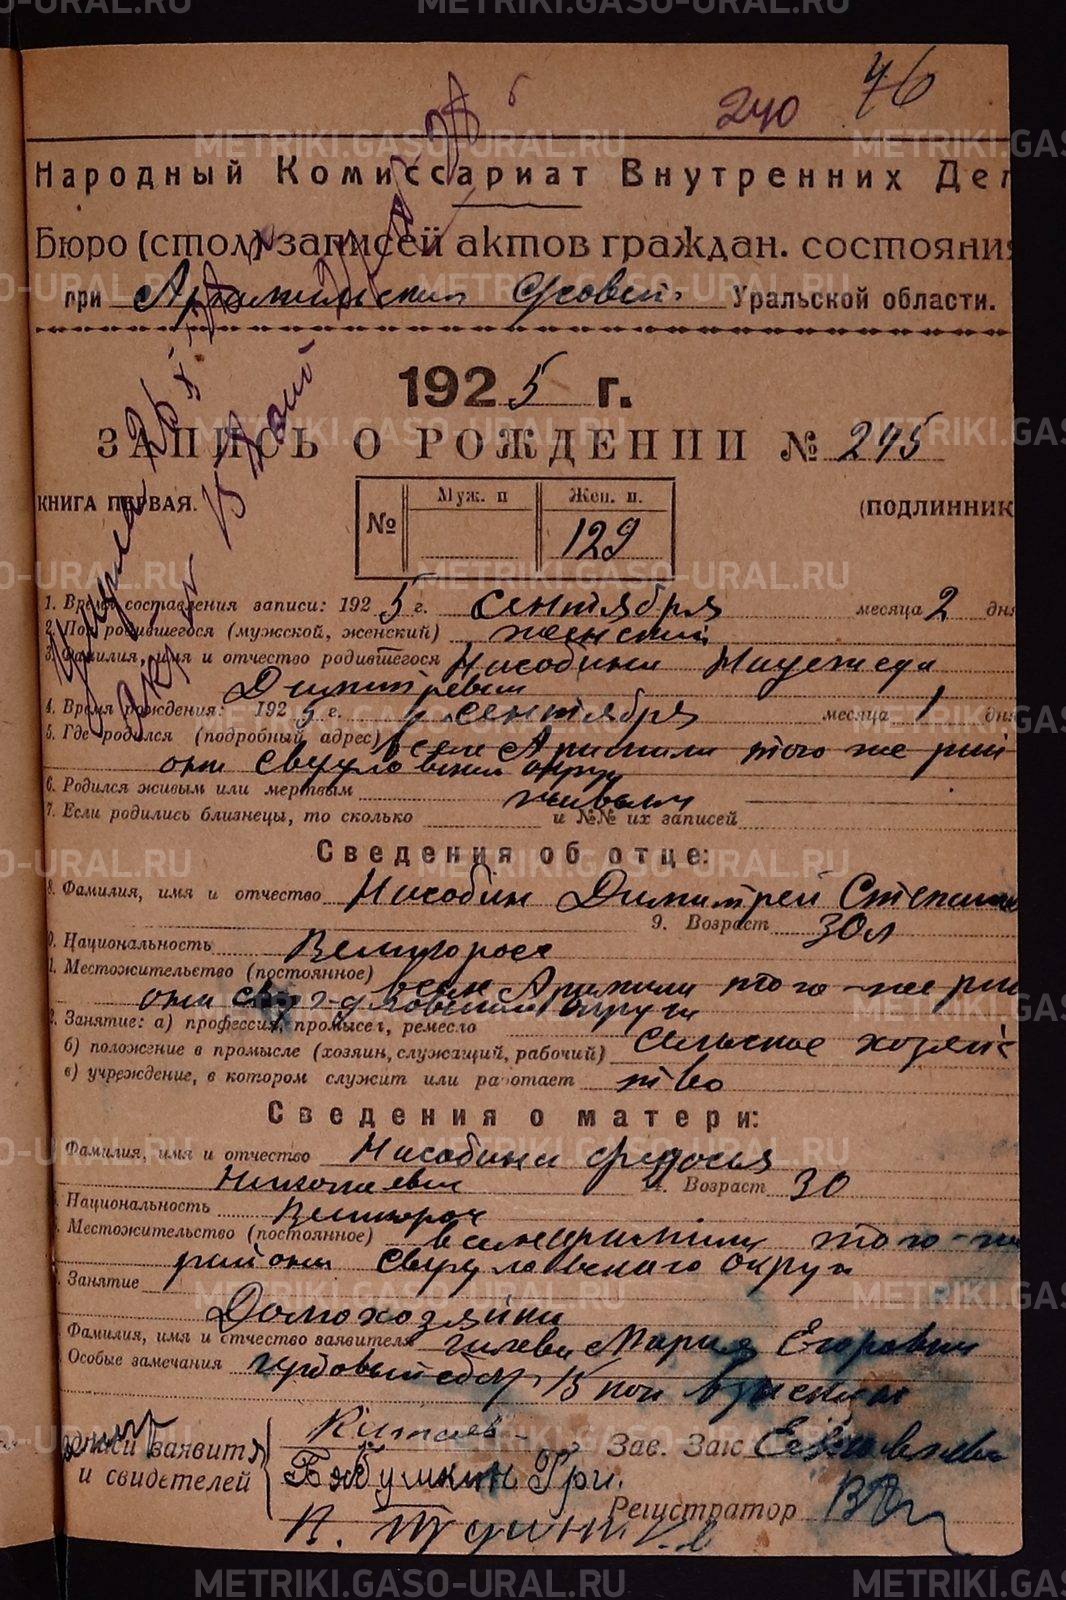 240 46
Народный Комиссариат Внутренних Дел
Бюро (стол) записей актов граждан. состояния
при Арамильском Уральской области.
1925 г.
ЗАПИСЬ О РОЖДЕНИИ № 245
КНИГА ПЕРВАЯ. (ПОДЛИННИК
№ Муж. п Жен. п.
129
1. Время составления записи: 1925 г. сентября месяца 2 дня
2. Пол родившегося (мужской, женский) женский
3. Фамилия, имя и отчество родившегося Надежда
Дмитревна
4. Время рождения: 1925 г. сентября месяца 1 дня
5. Где родился (подробный адрес) в селе Арамили того же рай
она Свердловского округа
6. Родился живым или мертвым живым
7. Если родились близнецы, то сколько и №№ их записей
Сведения об отце:
8. Фамилия, имя и отчество Димитрей Степанов
9. Возраст 30 л
Национальность Великоросс
1. Местожительство (постоянное) в селе Арамили того-же рай
она Свердловского округа
Занятие: а) профессия, промысел, ремесло
б) положение в промысле (хозяин, служащий, рабочий) сельское хозяйс
в) учреждение, в котором служит или работает тво
Сведения о матери:
Фамилия, имя и отчество Федосья
Николаевна Возраст 30
Национальность Великорос
Местожительство (постоянное) в селе Арамили того-же
района Свердловского округа
Занятие
Домохозяйка
Фамилия, имя и отчество заявителя Мария Егоровна
Особые замечания гербовый сбор 15 коп взыскан
заявит
и свидетелей
Зав. Заг
Бабушкин Гри.
Регистратор
METRIKI.GASO-URAL.RU